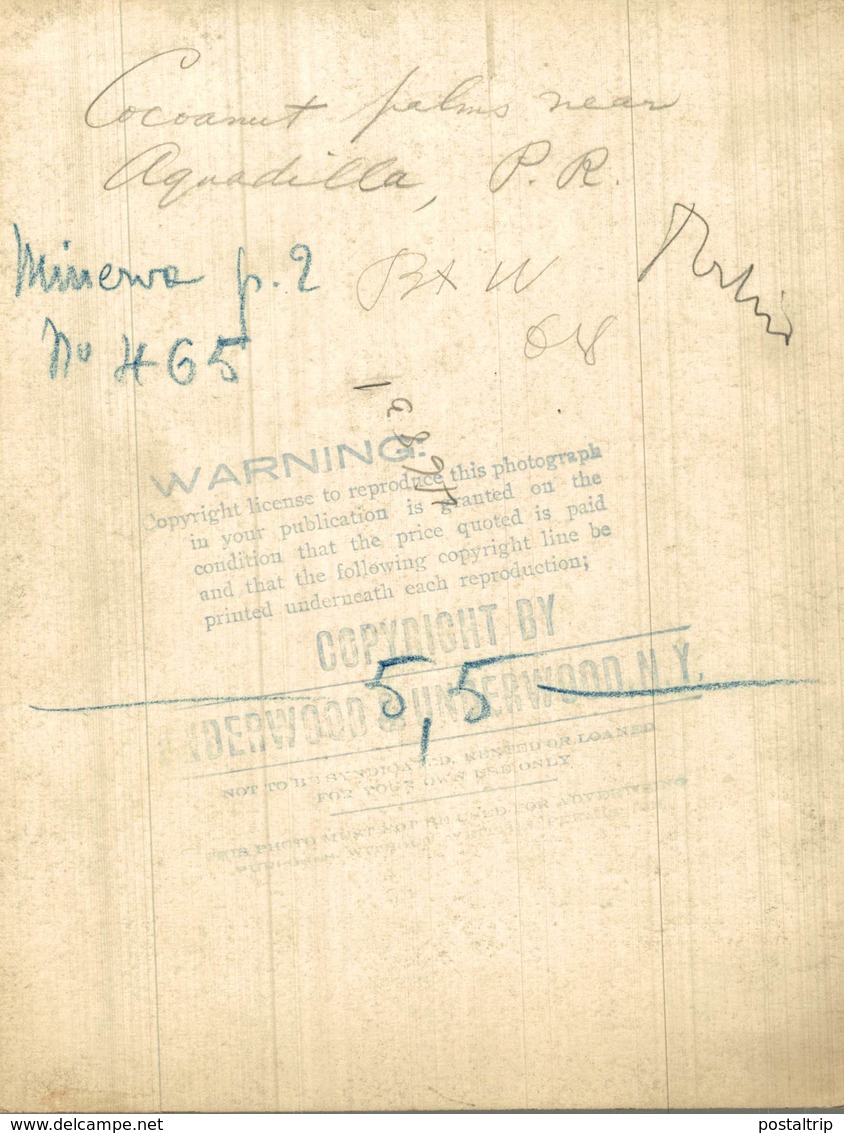 Cocoanut palms near
Aguadilla, P. R.
Minerva p. 2
No 465
B + W
68
WARNING:
Copyright license to reproduce this photograph
in your publication is granted on the
condition that the price quoted is paid
and that the following copyright line be
printed underneath each reproduction;
COPYRIGHT BY
UNDERWOOD & UNDERWOOD, N.Y.
5,5
NOT TO BE SYNDICATED, RENTED OR LOANED
FOR YOUR OWN USE ONLY
THIS PHOTO MUST NOT BE USED FOR ADVERTISING
www.delcampe.net
postaltrip